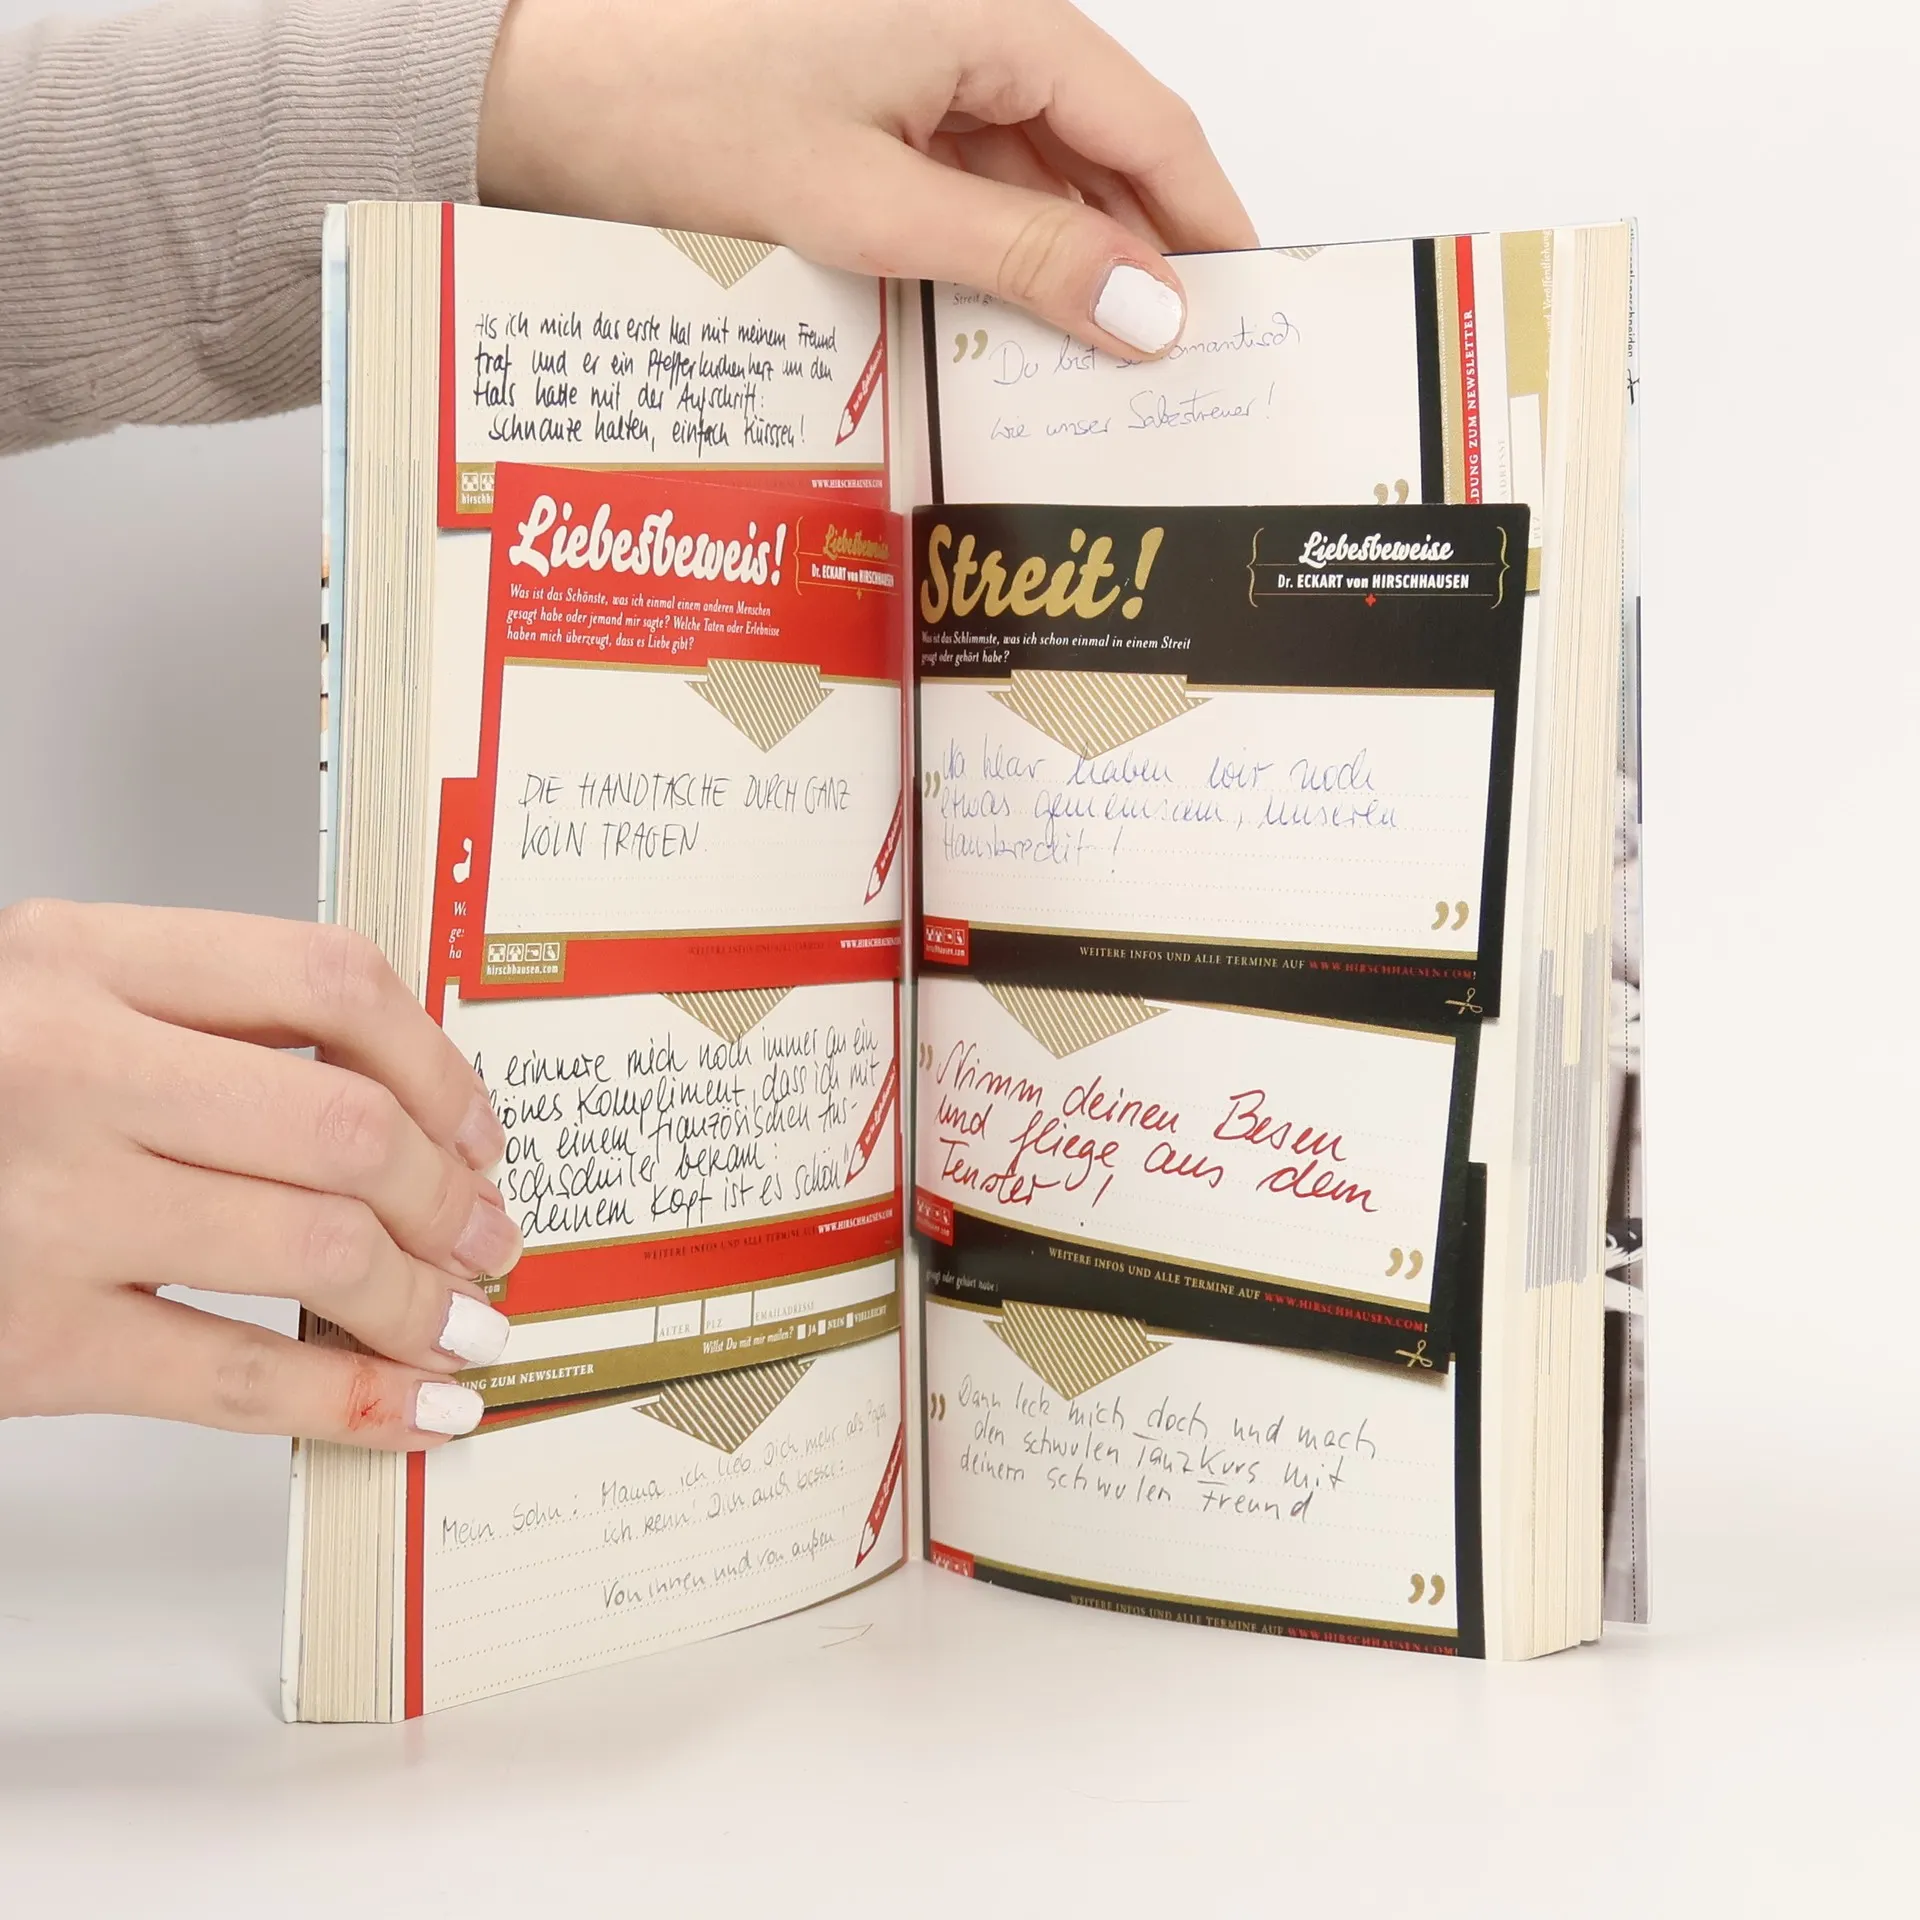 Als ich mich das erste Mal mit meinem Freund
traf und er ein Pfefferkuchenherz um den
Hals hatte mit der Aufschrift:
Schnauze halten, einfach küssen!
WWW.HIRSCHHAUSEN.COM
Liebesbeweis!
Liebesbeweise
Dr. ECKART von HIRSCHHAUSEN
Was ist das Schönste, was ich einmal einem anderen Menschen
gesagt habe oder jemand mir sagte? Welche Taten oder Erlebnisse
haben mich überzeugt, dass es Liebe gibt?
DIE HANDTASCHE DURCH GANZ
KÖLN TRAGEN.
hirschhausen.com
WEITERE INFOS UND ALLE TERMINE AUF WWW.HIRSCHHAUSEN.COM
erinnere mich noch immer an ein
Kompliment, dass ich mit
von einem französischen Aus-
bekam:
deinem Kopf ist es schön"
WEITERE INFOS UND ALLE TERMINE AUF WWW.HIRSCHHAUSEN.COM
ALTER
PLZ
EMAILADRESSE
Willst Du mit mir mailen? JA NEIN VIELLEICHT
ZUM NEWSLETTER
Mein Sohn: Mama ich lieb Dich mehr als Papa
ich kenn' Dich auch besser:
Von innen und von außen!
„Du bist romantisch
wie unser Salzstreuer!
”
DUNG ZUM NEWSLETTER
Streit!
Liebesbeweise
Dr. ECKART von HIRSCHHAUSEN
Was ist das Schlimmste, was ich schon einmal in einem Streit
gesagt oder gehört habe?
” Na klar haben wir noch
etwas gemeinsam, unseren
Hauskredit!
”
hirschhausen.com
WEITERE INFOS UND ALLE TERMINE AUF WWW.HIRSCHHAUSEN.COM!
” Nimm deinen Besen
und fliege aus dem
Fenster!
”
WEITERE INFOS UND ALLE TERMINE AUF WWW.HIRSCHHAUSEN.COM!
gesagt oder gehört habe?
” Dann leck mich doch und mach
den schwulen Tanzkurs mit
deinem schwulen Freund
”
WEITERE INFOS UND ALLE TERMINE AUF WWW.HIRSCHHAUSEN.COM!